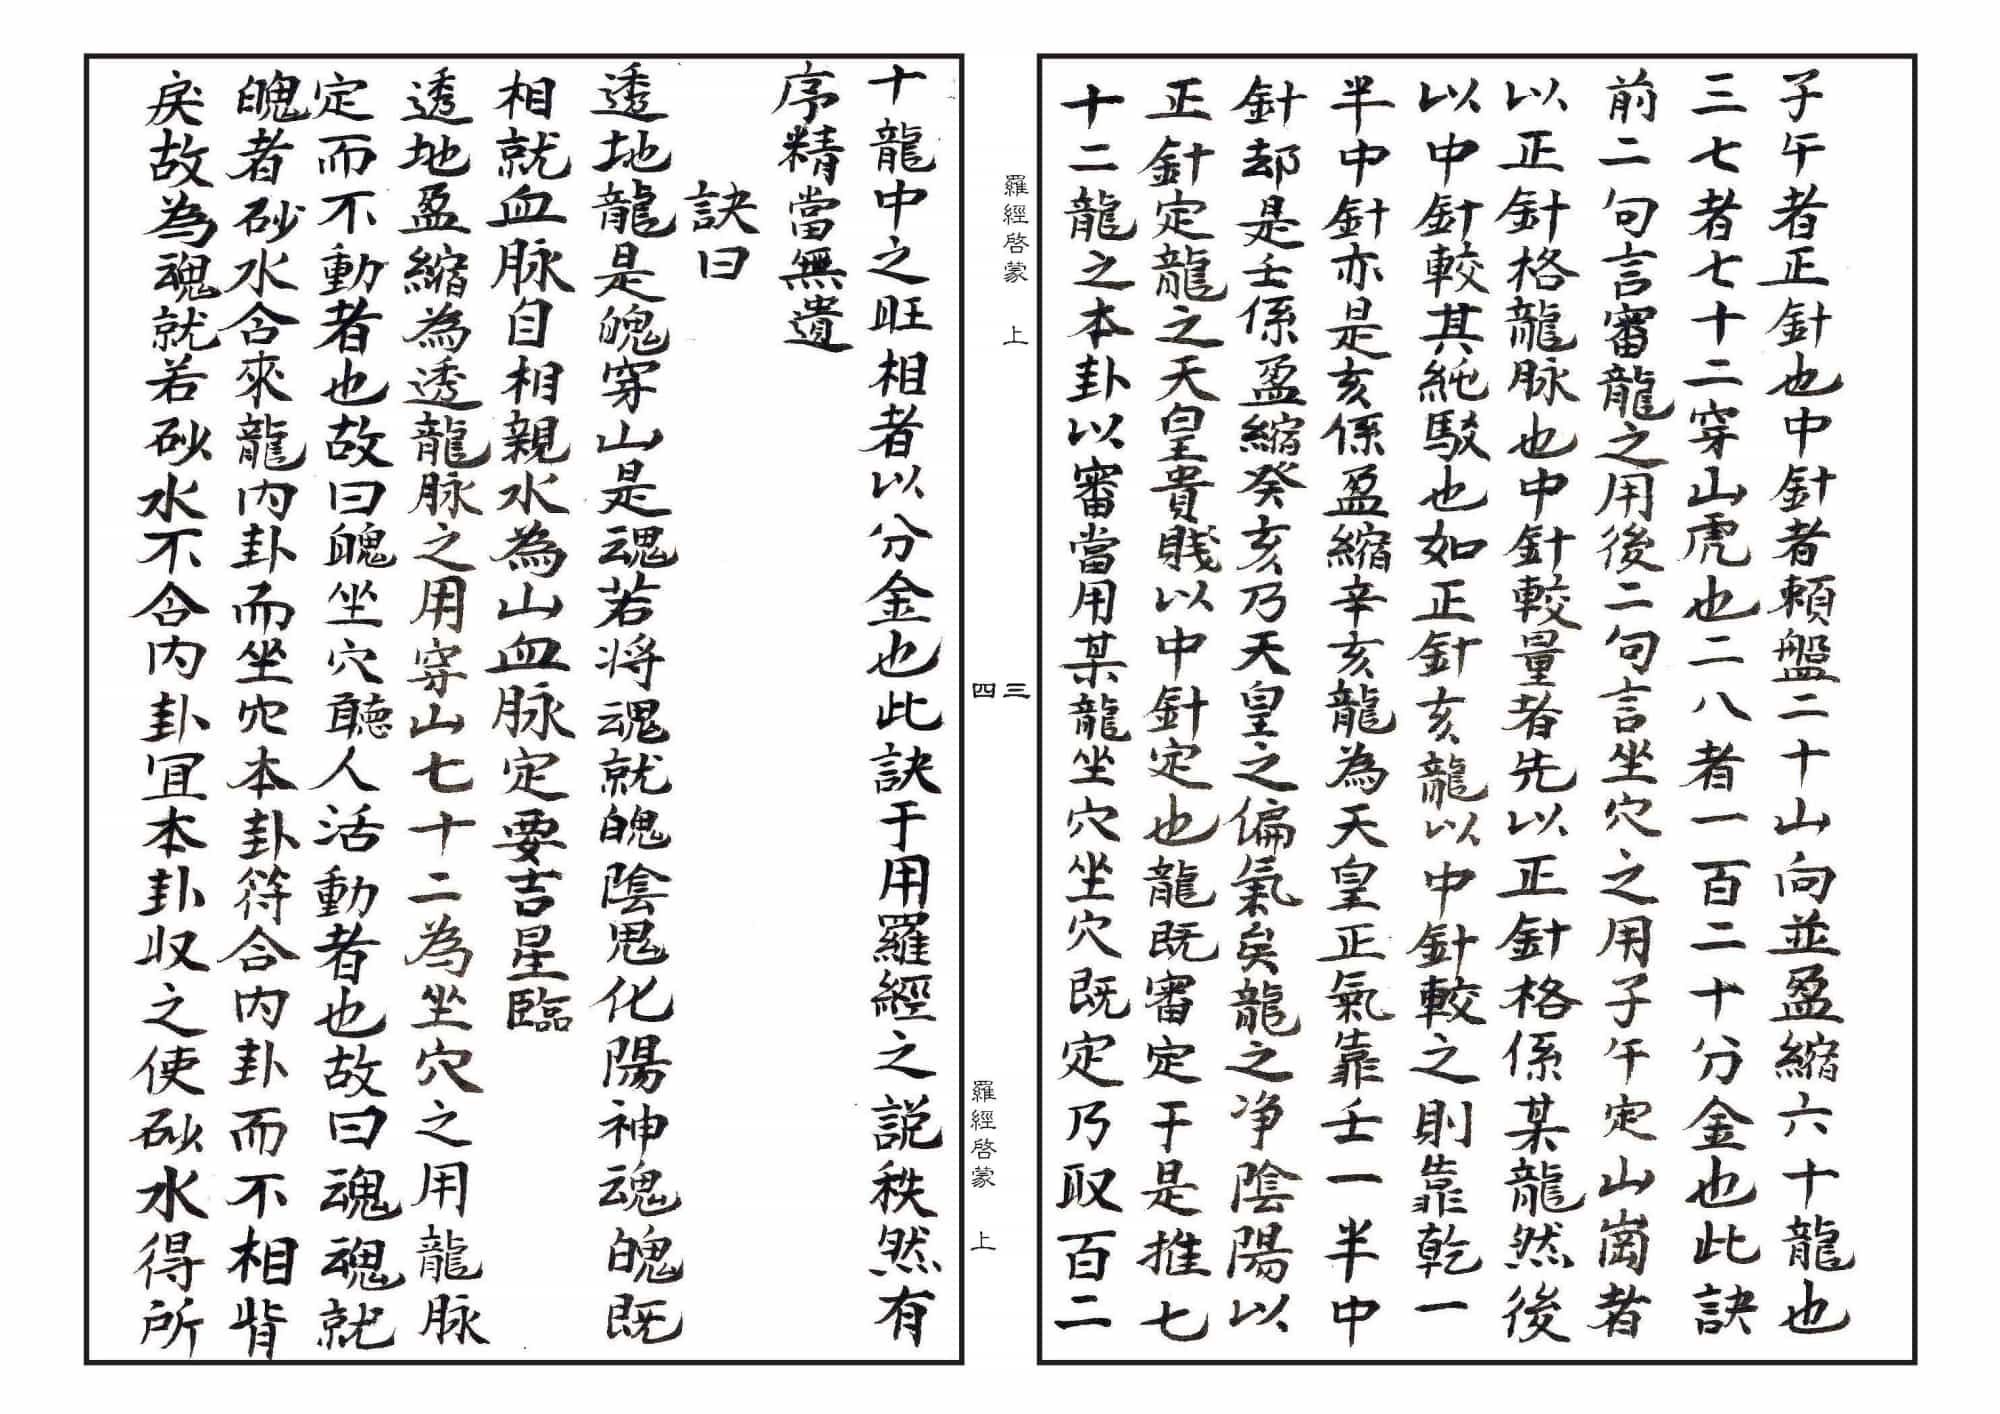 子午者正針也中針者賴盤二十山向並盈縮六十龍也
三七者七十二穿山虎也二八者一百二十分金也此訣
前二句言審龍之用後二句言坐穴之用子午定山崗者
以正針格龍脉也中針較量者先以正針格係某龍然後
以中針較其純駁也如正針亥龍以中針較之則靠乾一
半中針亦是亥係盈縮辛亥龍為天皇正氣靠壬一半中
針却是壬係盈縮癸亥乃天皇之偏氣矣龍之净陰陽以
正針定龍之天皇貴賤以中針定也龍既審定于是推七
十二龍之本卦以審當用某龍坐穴坐穴既定乃取百二
羅經啓蒙 上
三
四
羅經啓蒙 上
十龍中之旺相者以分金也此訣于用羅經之説秩然有
序精當無遺
訣曰
透地龍是魄穿山是魂若将魂就魄陰鬼化陽神魂魄既
相就血脉自相親水為山血脉定要吉星臨
透地盈縮為透龍脉之用穿山七十二為坐穴之用龍脉
定而不動者也故曰魄坐穴聽人活動者也故曰魂魂就
魄者砂水合來龍内卦而坐穴本卦符合内卦而不相背
戾故為魂就若砂水不合内卦宜本卦収之使砂水得所